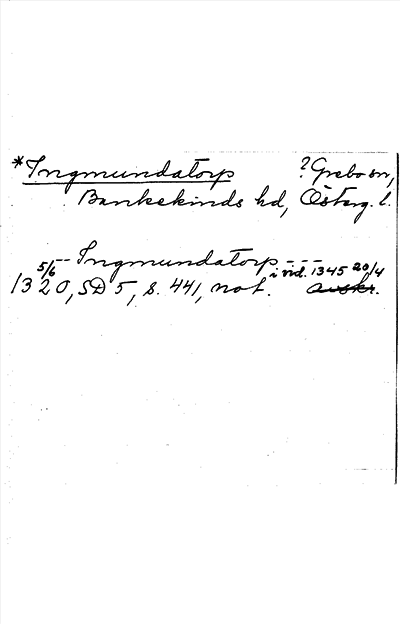 *Ingmundatorp ? Grebo sn,
Bankekinds hd, Österg. l.
-- Ingmundatorp ---
1320 5/6, SD 5, s. 441, not. i vid. 1345 20/4 avskr.